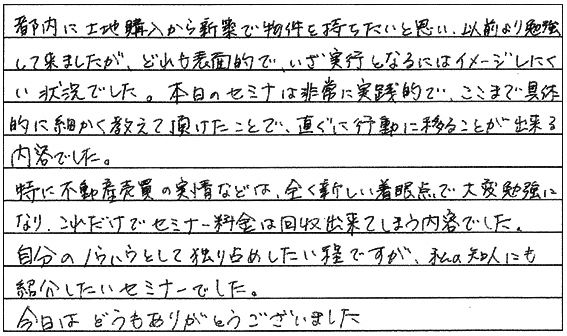 都内に土地購入から新築で物件を持ちたいと思い、以前より勉強
して来ましたが、どれも表面的で、いざ実行となるにはイメージしにく
い状況でした。本日のセミナは非常に実践的で、ここまで具体
的に細かく教えて頂けたことで、直ぐに行動に移ることが出来る
内容でした。
特に不動産売買の実情などは、全く新しい着眼点で大変勉強に
なり、これだけでセミナー料金は回収出来てしまう内容でした。
自分のノウハウとして独り占めしたい程ですが、私の知人にも
紹介したいセミナーでした。
今日は どうもありがとうございました